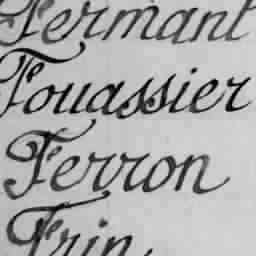 Fermant
Fouassier
Ferron
Frin